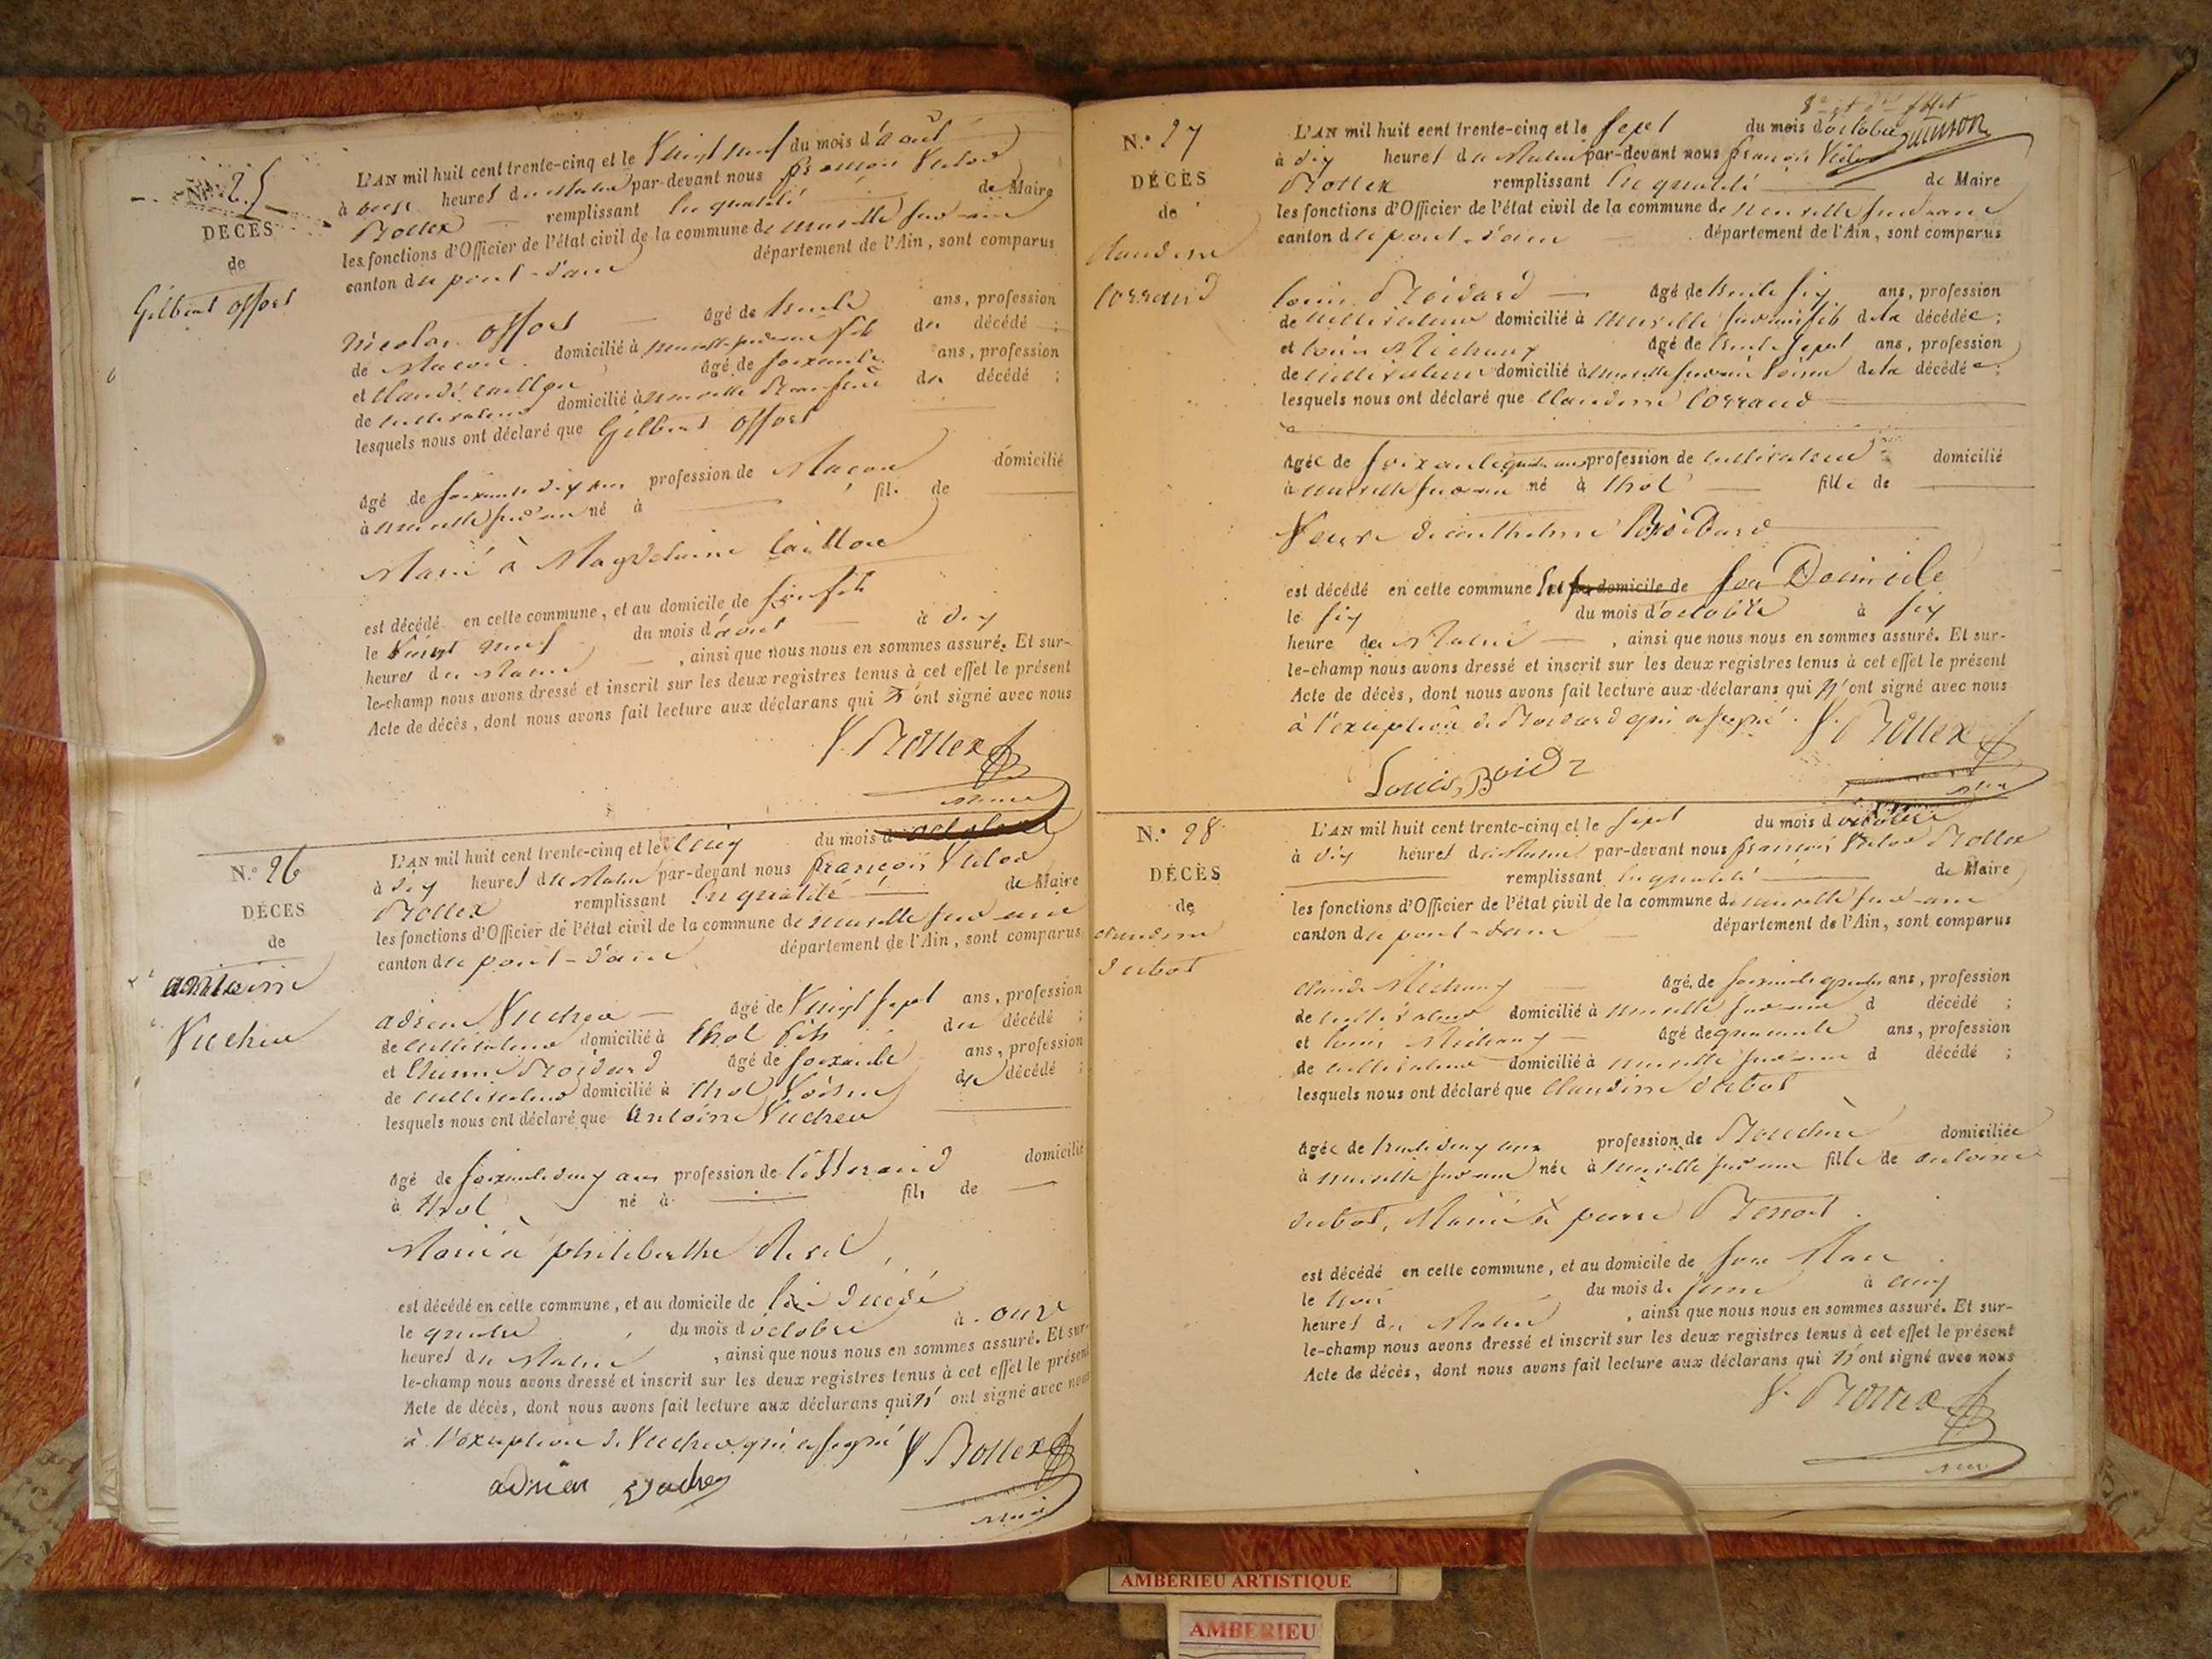 N.° 25
DÉCÈS
de
Gilbert Offort
L'AN mil huit cent trente-cinq et le Vingt neuf du mois d'aout
à onze heures du Matin par-devant nous françois Victor
Rollex remplissant en qualité de Maire
les fonctions d'Officier de l'état civil de la commune de neuville sur ain
canton du pont-d'ain département de l'Ain, sont comparus
Nicolas Offort âgé de trente ans, profession
de Macon domicilié à neuville sur ain fils du décédé ;
et Claude âgé de soixante ans, profession
de cultivateur domicilié à neuville du décédé ;
lesquels nous ont déclaré que Gilbert Offort
âgé de soixante dix ans profession de Macon domicilié
à neuville sur ain né à fils de
Marié à Magdelaine
est décédé en cette commune, et au domicile de son fils
le Vingt neuf du mois d'aout à dix
heures du Matin, ainsi que nous nous en sommes assuré. Et sur-
le-champ nous avons dressé et inscrit sur les deux registres tenus à cet effet le présent
Acte de décès, dont nous avons fait lecture aux déclarans qui n'ont signé avec nous
V. Rollex
Maire
N.° 26
DÉCÈS
de
antoine
Vucher
L'AN mil huit cent trente-cinq et le cinq du mois d'octobre
à dix heures du Matin par-devant nous françois Victor
Rollex remplissant en qualité de Maire
les fonctions d'Officier de l'état civil de la commune de neuville sur ain
canton du pont-d'ain département de l'Ain, sont comparus
adrien Vucher âgé de Vingt sept ans, profession
de cultivateur domicilié à thol fils du décédé ;
et Etienne Boidard âgé de soixante ans, profession
de cultivateur domicilié à thol Voisin du décédé ;
lesquels nous ont déclaré que antoine Vucher
âgé de soixante deux ans profession de tisserand domicilié
à thol né à fils de
Marié à philiberthe
est décédé en cette commune, et au domicile de
le quatre du mois d'octobre à onze
heures du Matin, ainsi que nous nous en sommes assuré. Et sur-
le-champ nous avons dressé et inscrit sur les deux registres tenus à cet effet le présent
Acte de décès, dont nous avons fait lecture aux déclarans qui n'ont signé avec nous
à l'exception de Vucher qui a signé V Rollex
adrien Maire
N.° 27
DÉCÈS
de
Claudine
Corrand
L'AN mil huit cent trente-cinq et le sept du mois d'octobre
à dix heures du Matin par-devant nous françois Victor
Rollex remplissant en qualité de Maire
les fonctions d'Officier de l'état civil de la commune de neuville sur ain
canton du pont-d'ain département de l'Ain, sont comparus
Louis Boidard âgé de trente six ans, profession
de cultivateur domicilié à neuville sur ain fils de la décédée ;
et Louis Michaux âgé de trente sept ans, profession
de cultivateur domicilié à neuville sur ain Voisin de la décédée ;
lesquels nous ont déclaré que Claudine Corrand
âgée de soixante quatre ans profession de cultivateur domicilié
à neuville sur ain né à thol fille de
Veuve de Boidard
est décédé en cette commune et au domicile de son Domicile
le six du mois d'octobre à six
heure du Matin, ainsi que nous nous en sommes assuré. Et sur-
le-champ nous avons dressé et inscrit sur les deux registres tenus à cet effet le présent
Acte de décès, dont nous avons fait lecture aux déclarans qui n'ont signé avec nous
à l'exception de Boidard qui a signé. V. Rollex
Louis
N.° 28
DÉCÈS
de
claudine
dubot
L'AN mil huit cent trente-cinq et le sept du mois d'octobre
à dix heures du Matin par-devant nous françois Victor Rollex
remplissant en qualité de Maire
les fonctions d'Officier de l'état civil de la commune de neuville sur ain
canton du pont-d'ain département de l'Ain, sont comparus
claude Michaux âgé de soixante quatre ans, profession
de cultivateur domicilié à neuville sur ain d décédé ;
et Louis Michaux âgé de quarante ans, profession
de cultivateur domicilié à neuville sur ain d décédé ;
lesquels nous ont déclaré que Claudine dubot
âgée de trente deux ans profession de domiciliée
à neuville sur ain née à neuville sur ain fille de antoine
dubot, Marié à pierre
est décédé en cette commune, et au domicile de son Mari
le trois du mois de à cinq
heures du Matin, ainsi que nous nous en sommes assuré. Et sur-
le-champ nous avons dressé et inscrit sur les deux registres tenus à cet effet le présent
Acte de décès, dont nous avons fait lecture aux déclarans qui n'ont signé avec nous
V. Rollex
AMBERIEU ARTISTIQUE
AMBERIEU